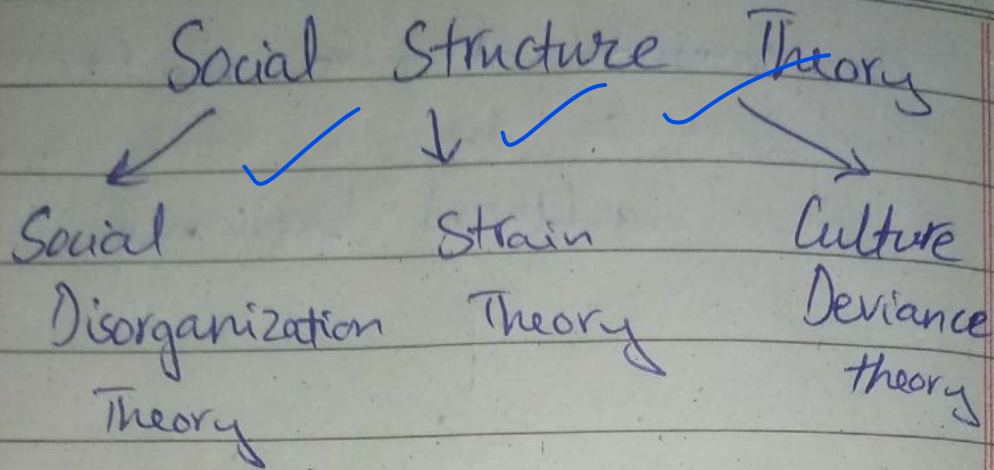 Social Structure Theory
Social
Disorganization
Theory
Strain
Theory
Culture
Deviance
theory